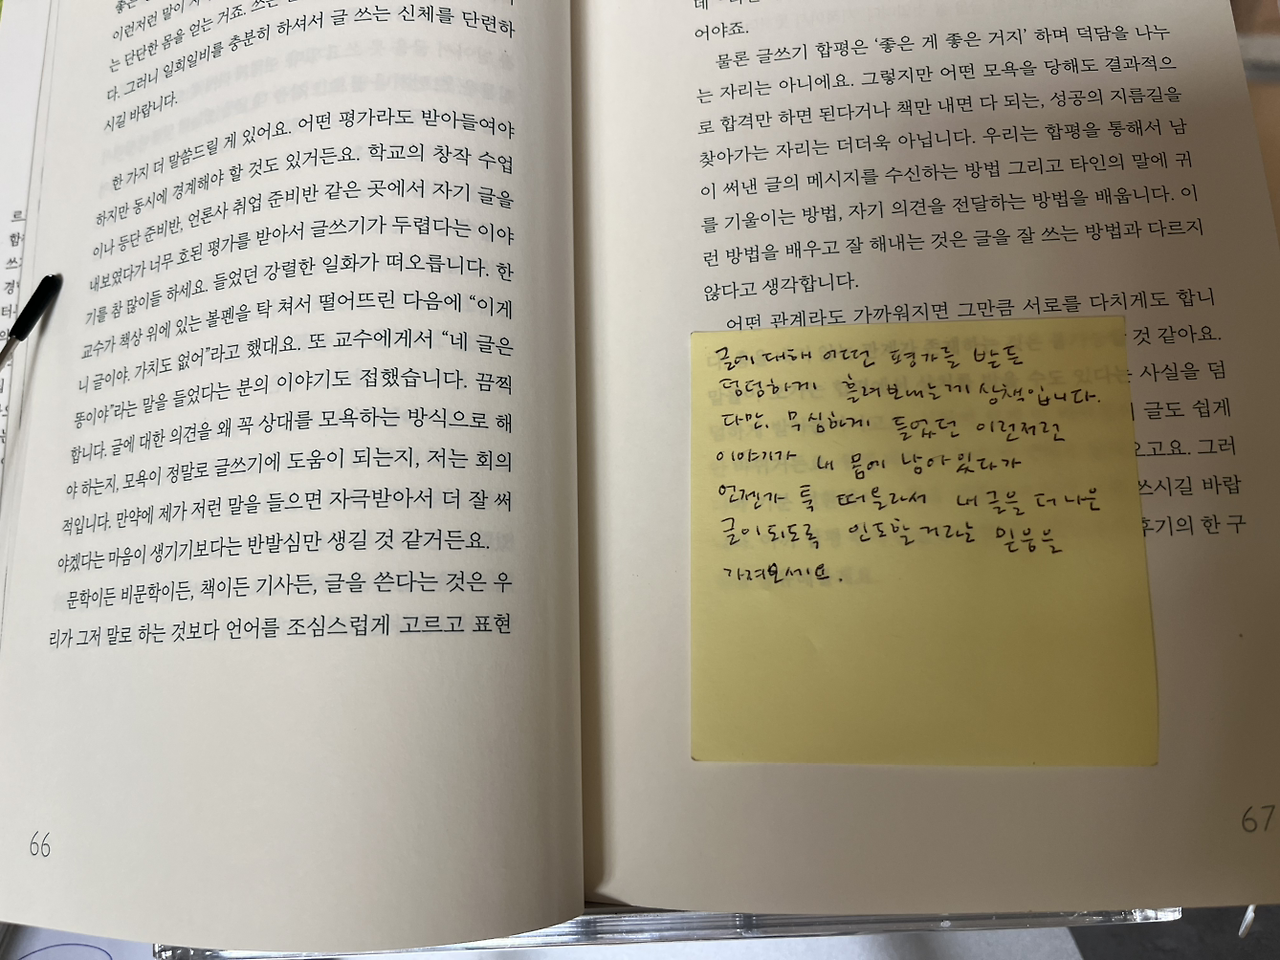 이런저런 말이
는 단단한 몸을 얻는 거죠. 쓰는
다. 그러니 일희일비를 충분히 하셔서 글 쓰는 신체를 단련하
시길 바랍니다.
한 가지 더 말씀드릴 게 있어요. 어떤 평가라도 받아들여야
하지만 동시에 경계해야 할 것도 있거든요. 학교의 창작 수업
이나 등단 준비반, 언론사 취업 준비반 같은 곳에서 자기 글을
내보였다가 너무 호된 평가를 받아서 글쓰기가 두렵다는 이야
기를 참 많이들 하세요. 들었던 강렬한 일화가 떠오릅니다. 한
교수가 책상 위에 있는 볼펜을 탁 쳐서 떨어뜨린 다음에 “이게
니 글이야. 가치도 없어”라고 했대요. 또 교수에게서 “네 글은
똥이야”라는 말을 들었다는 분의 이야기도 접했습니다. 끔찍
합니다. 글에 대한 의견을 왜 꼭 상대를 모욕하는 방식으로 해
야 하는지, 모욕이 정말로 글쓰기에 도움이 되는지, 저는 회의
적입니다. 만약에 제가 저런 말을 들으면 자극받아서 더 잘 써
야겠다는 마음이 생기기보다는 반발심만 생길 것 같거든요.
문학이든 비문학이든, 책이든 기사든, 글을 쓴다는 것은 우
리가 그저 말로 하는 것보다 언어를 조심스럽게 고르고 표현
66
어야죠.
물론 글쓰기 합평은 ‘좋은 게 좋은 거지’ 하며 덕담을 나누
는 자리는 아니에요. 그렇지만 어떤 모욕을 당해도 결과적으
로 합격만 하면 된다거나 책만 내면 다 되는, 성공의 지름길을
찾아가는 자리는 더더욱 아닙니다. 우리는 합평을 통해서 남
이 써낸 글의 메시지를 수신하는 방법 그리고 타인의 말에 귀
를 기울이는 방법, 자기 의견을 전달하는 방법을 배웁니다. 이
런 방법을 배우고 잘 해내는 것은 글을 잘 쓰는 방법과 다르지
않다고 생각합니다.
어떤 관계라도 가까워지면 그만큼 서로를 다치게도 합니
것 같아요.
사실을 덤
글도 쉽게
오고요. 그러
쓰시길 바랍
후기의 한 구
글에 대해 어떤 평가를 받든
덤덤하게 흘려보내는게 상책입니다.
다만, 무심하게 들었던 이런저런
이야기가 내 몸에 남아있다가
언젠가 툭 떠올라서 내 글을 더 나은
글이 되도록 인도할 거라는 믿음을
가져보세요.
67